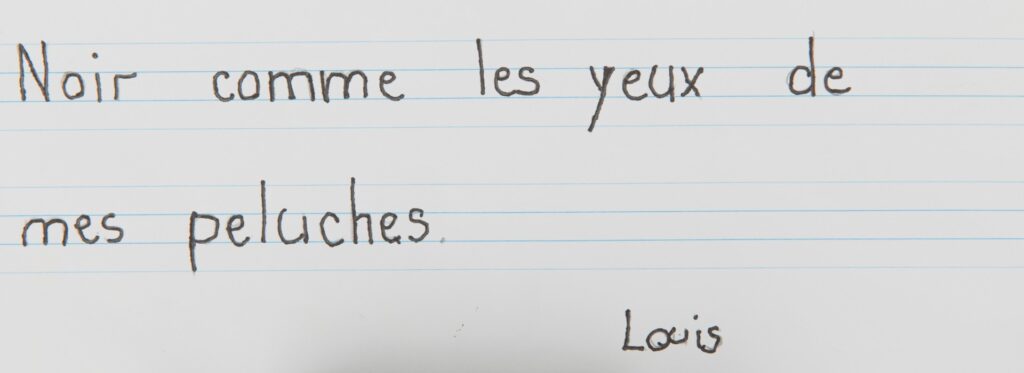 Noir comme les yeux de
mes peluches.
Louis